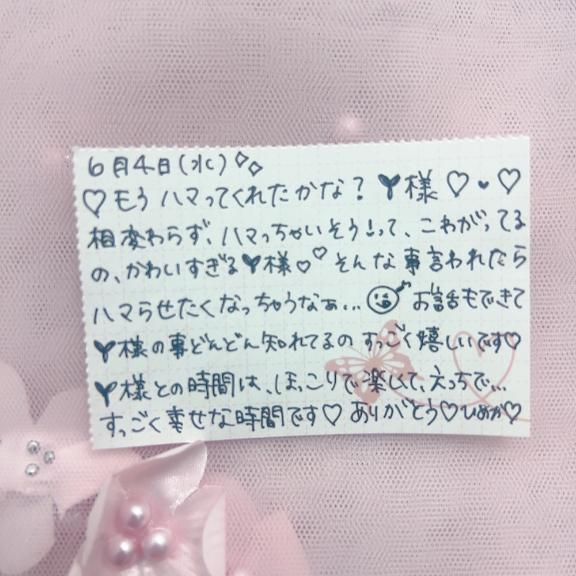 6月4日(水)
♡もうハマってくれたかな？ 様♡♥♡
相変わらず、ハマっちゃいそう!って、こわがってる
の、かわいすぎる 様♡♡そんな事言われたら
ハマらせたくなっちゃうなぁ… お話もできて
様の事どんどん知れてるのすっごく嬉しいです♡
様との時間は、ほっこりで楽しくて、えっちで…
すっごく幸せな時間です♡ありがとう♡ひめか♡